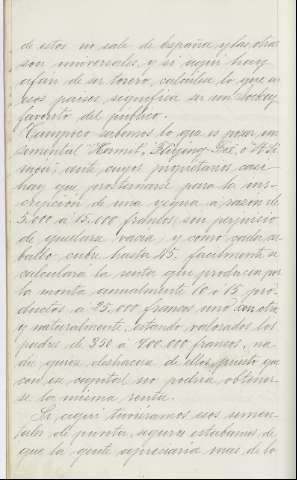 de estos no sale de España y las otras
son universales, y si aqui hay
afán de ser torero, calcúlese lo que en
esos paises significa ser un jockey
favorito del público.
Tampoco sabemos lo que es poseer un
semental
ante cuyos propietarios casi
hay que prosternarse para la ins-
cripción de una yegua á razon de
5.000 á 15.000 francos, sin perjuicio
de quedarse vacia, y como cada ca-
ballo cubre hasta 45, facilmente se
calculará la renta que producen por
la monta anualmente 10 ó 15 pro-
ductos á 25.000 francos uno con otro
y naturalmente, estando valorados los
padres de 350 á 800.000 francos, na-
die quiere deshacerse de ellos, puesto que
con ese capital no podria obtener-
se la misma renta.
Si aqui tuvieramos esos semen-
tales de punta, seguros estabamos de
que la gente apreciaria mas de lo